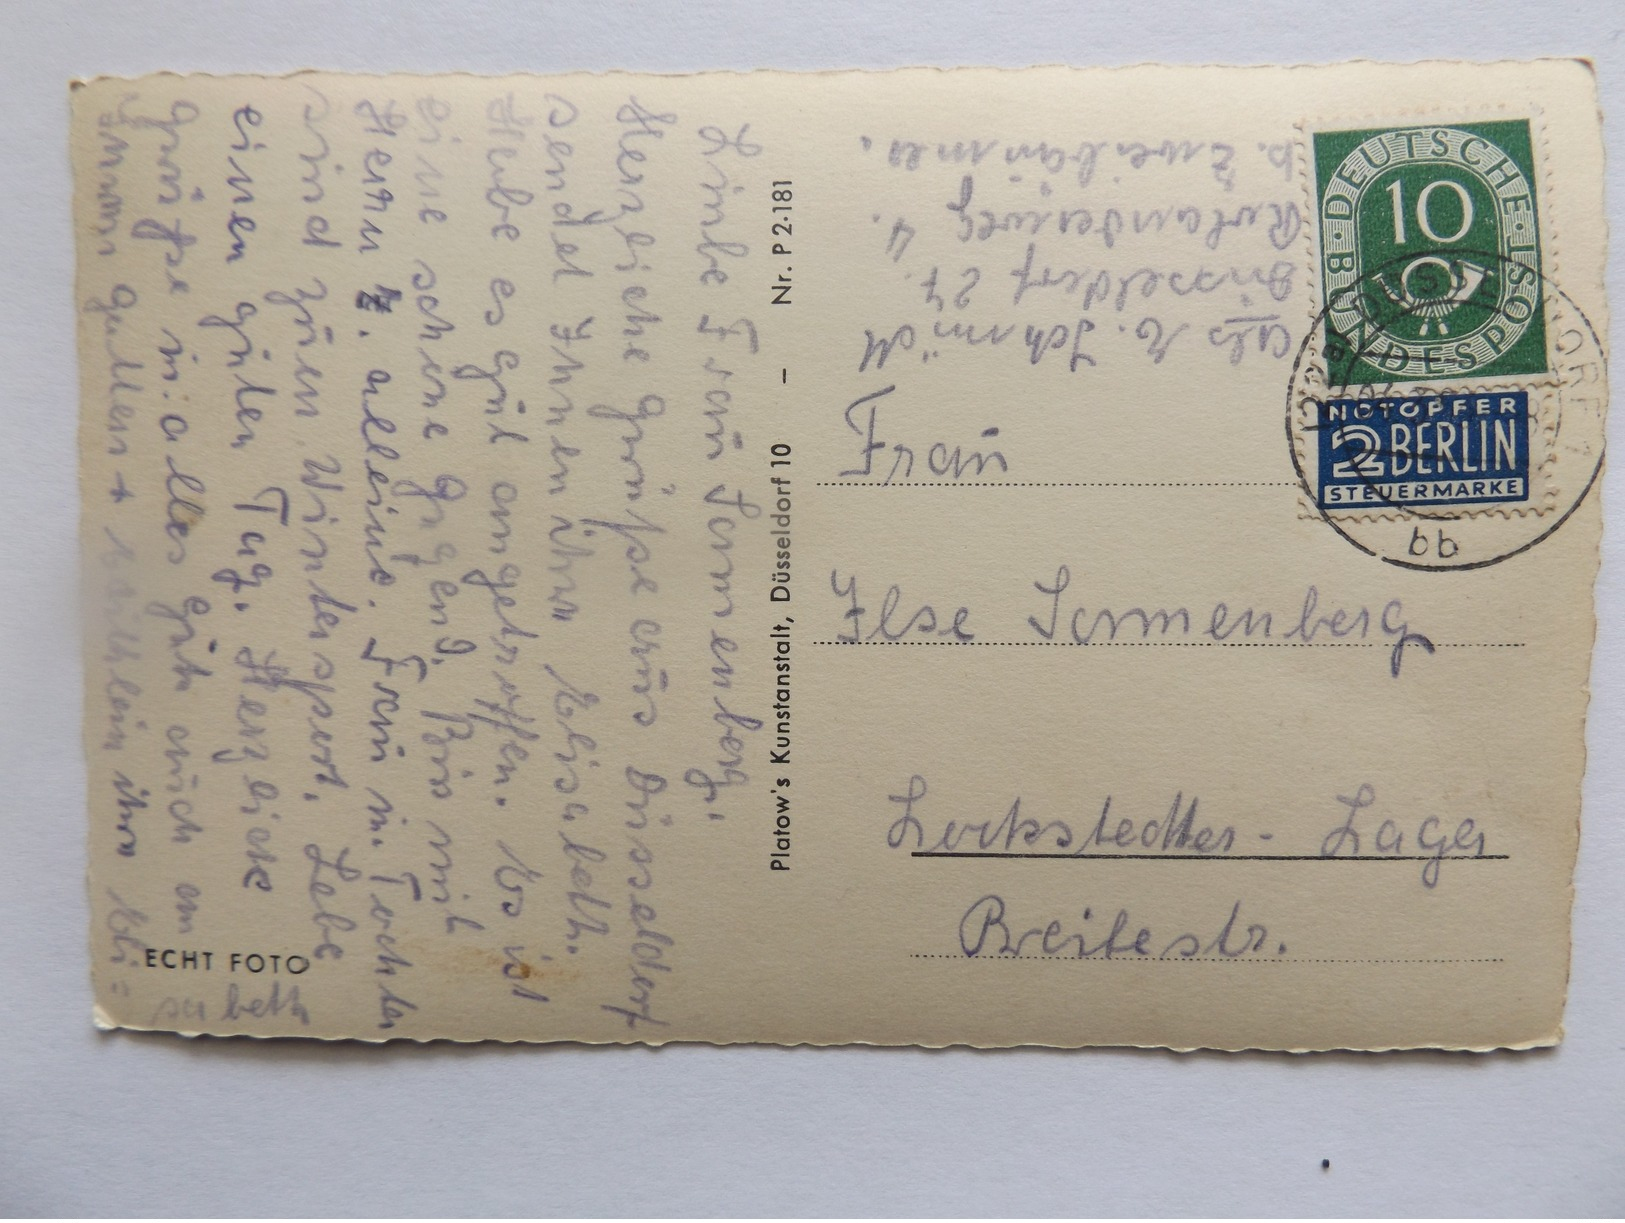 Liebe Frau Sonnenberg.
Herzliche Grüße aus Düsseldorf
sendet Ihnen ihre Elisabeth.
Habe es gut angetroffen. Es ist
eine schöne Gegend. Bin mit
Herrn Z. alleine. Frau u. Tochter
sind zum Wintersport. Lebe
einen guten Tag. Herzliche
Grüße u. alles gute auch an
guttern + ihre Eli=
sabeth
ECHT FOTO
Platow's Kunstanstalt, Düsseldorf 10 — Nr. P 2-181
Abs E. Schmidt
Düsseldorf 24.
Rolanderweg 4.
b. Zweibäumer.
DEUTSCHE BUNDESPOST
10
NOTOPFER
2 BERLIN
STEUERMARKE
DÜSSELDORF
bb
Frau
Ilse Sonnenberg
Lockstedter-Lager
Breitestr.